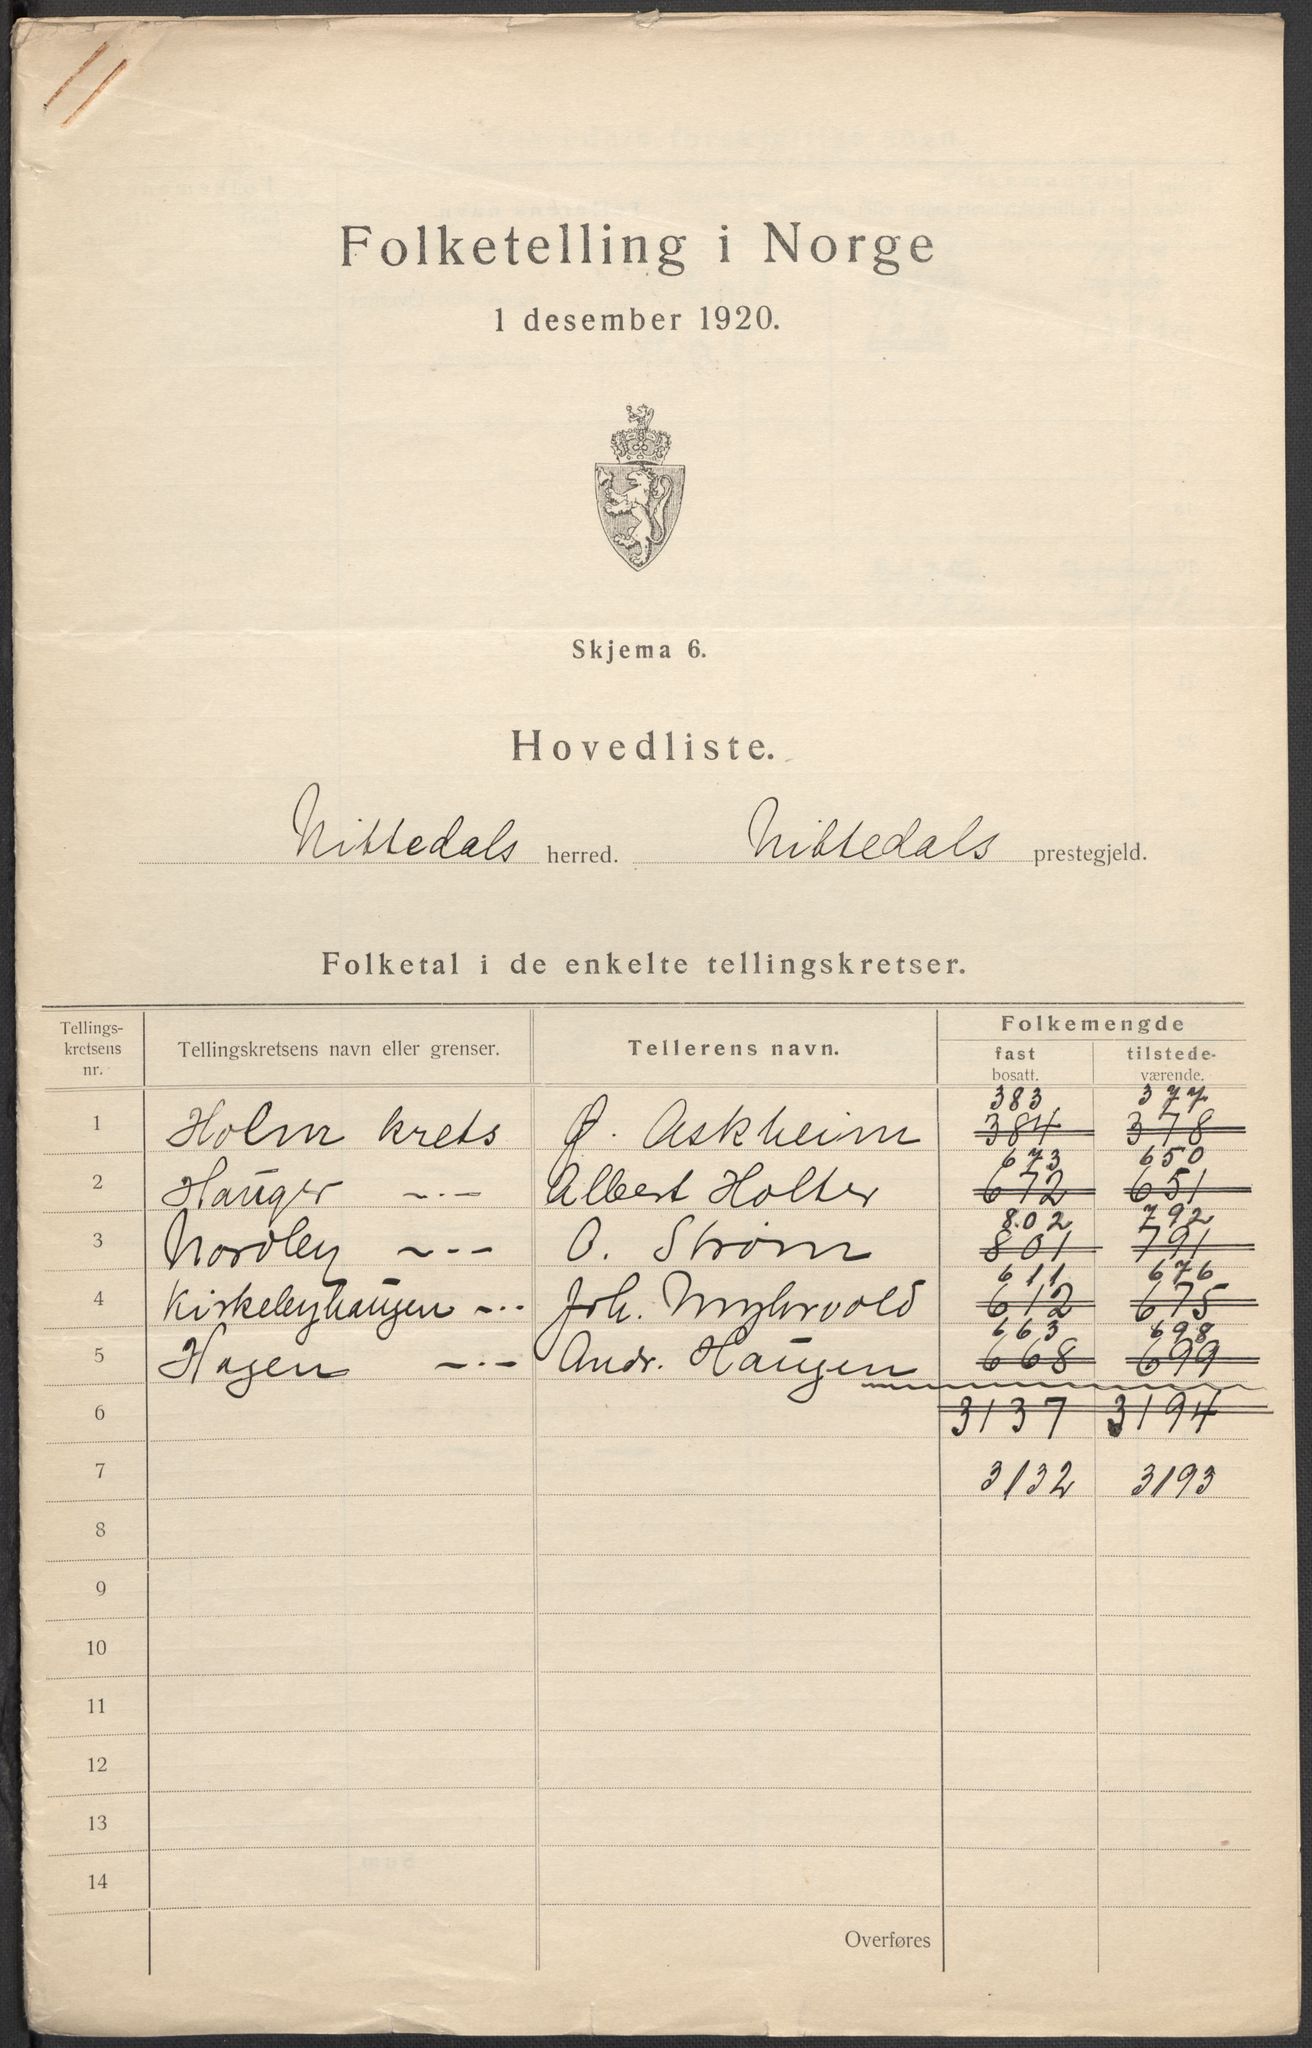 Folketelling i Norge
1 desember 1920.
Skjema 6.
Hovedliste.
Nittedals herred. Nittedals prestegjeld.
Folketal i de enkelte tellingskretser.
Tellings-
kretsens
nr.
Tellingskretsens navn eller grenser.
Tellerens navn.
Folkemengde
fast
bosatt.
tilstede-
værende.
383 377
1 Holm krets Ø. Askheim 384 378
673 650
2 Hauger -„- Albert Holter 672 651
802 792
3 Nordby -„- O. Strøm 801 791
611 676
4 Kirkebyhaugen -„- Joh. Myhrvold 612 675
663 698
5 Hagen -„- Andr. Haugen 668 699
6 3137 3194
7 3132 3193
8
9
10
11
12
13
14
Overføres